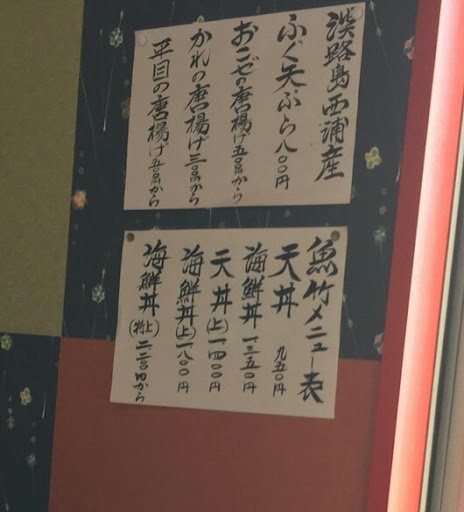 淡路島西浦産
ふぐ天ぷら八〇〇円
おこぜの唐揚げ五〇〇円から
かれの唐揚げ三〇〇円から
平目の唐揚げ五〇〇円から
魚竹メニュー表
天丼 九五〇円
海鮮丼 一三五〇円
天丼(上)一四〇〇円
海鮮丼(上)一八〇〇円
海鮮丼(特上)二二〇〇円から